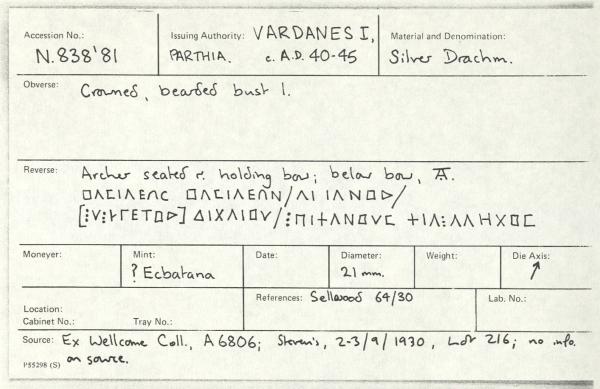 Accession No.: N.838'81
Issuing Authority: VARDANES I,
PARTHIA. c. A.D. 40-45
Material and Denomination:
Silver Drachm.
Obverse: Crowned, bearded bust l.
Reverse: Archer seated r. holding bow; below bow,
Moneyer:
Mint: ? Ecbatana
Date:
Diameter: 21 mm.
Weight:
Die Axis: ↗
Location:
Cabinet No.: Tray No.:
References: Sellwood 64/30
Lab. No.:
Source: Ex Wellcome Coll., A6806; Stevens, 2-3/9/1930, Lot 216; no info.
on source.
P55298 (S)